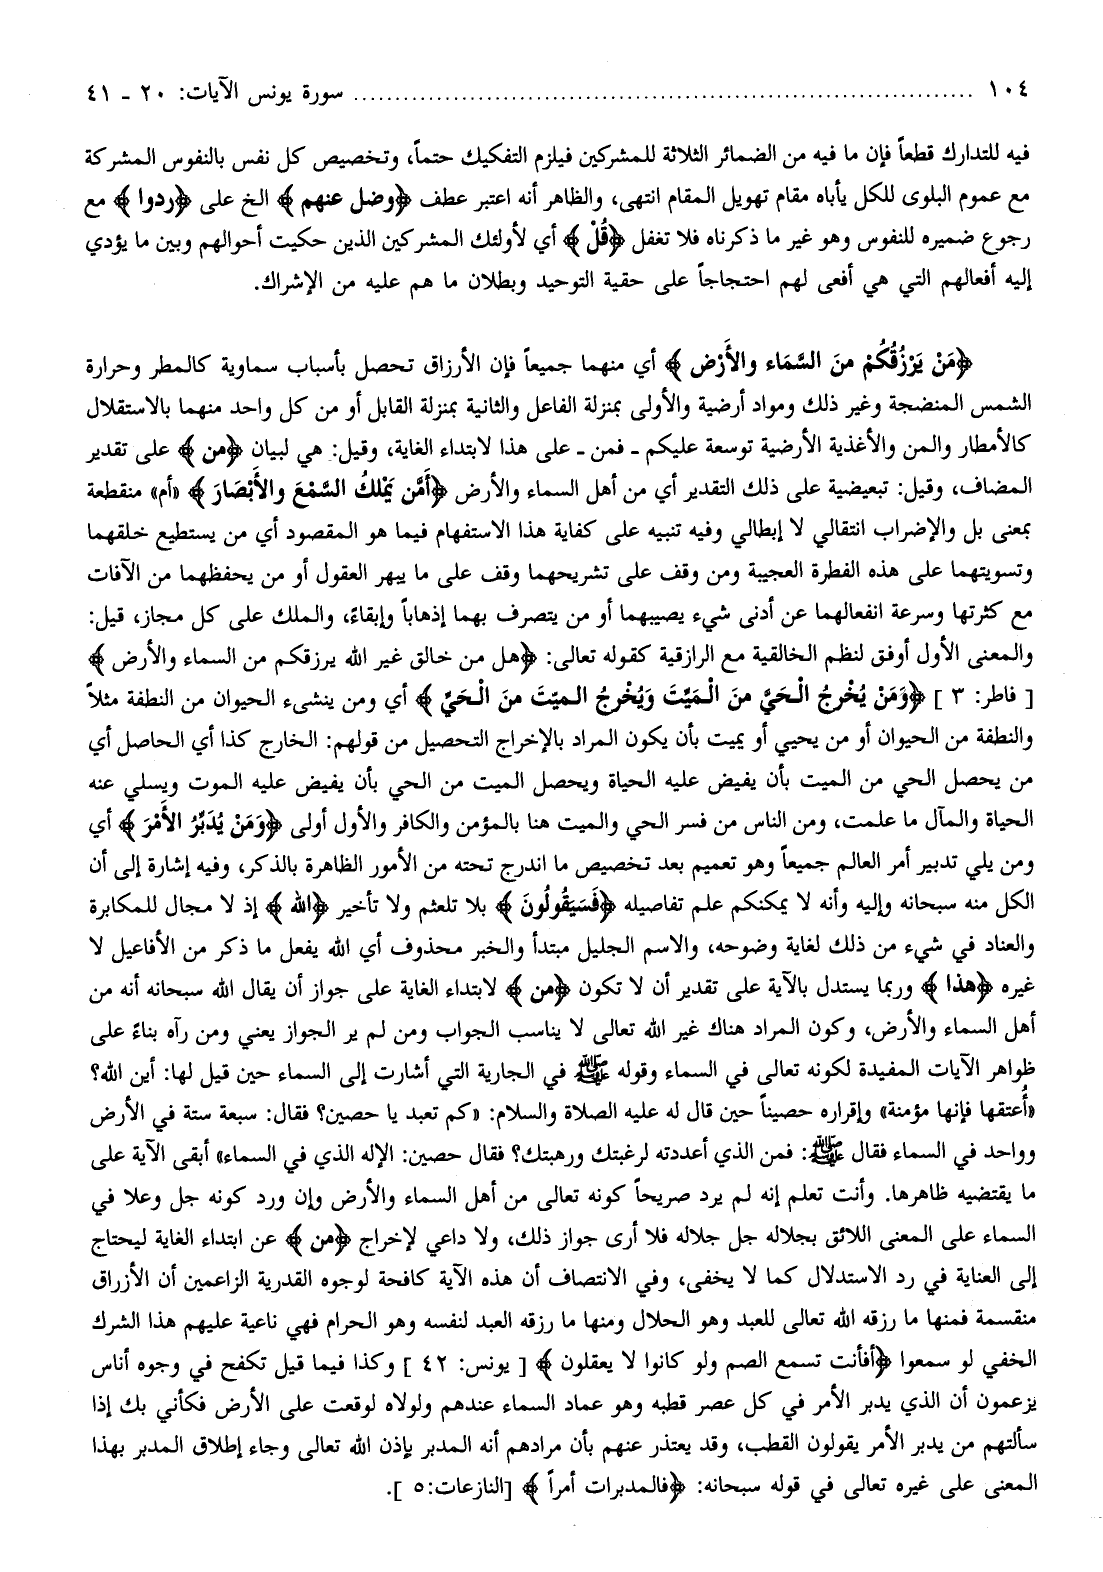 ١٠٤ ........................................................................ سورة يونس الآيات: ٢٠ - ٤١
فيه للتدارك قطعاً فإن ما فيه من الضمائر الثلاثة للمشركين فيلزم التفكيك حتماً، وتخصيص كل نفس بالنفوس المشركة
مع عموم البلوى للكل يأباه مقام تهويل المقام انتهى، والظاهر أنه اعتبر عطف ﴿وضل عنهم﴾ الخ على ﴿ردوا﴾ مع
رجوع ضميره للنفوس وهو غير ما ذكرناه فلا تغفل ﴿قُلْ﴾ أي لأولئك المشركين الذين حكيت أحوالهم وبين ما يؤدي
إليه أفعالهم التي هي أفعى لهم احتجاجاً على حقية التوحيد وبطلان ما هم عليه من الإشراك.
﴿مَنْ يَرْزُقُكُمْ منَ السَّمَاء والأَرْض﴾ أي منهما جميعاً فإن الأرزاق تحصل بأسباب سماوية كالمطر وحرارة
الشمس المنضجة وغير ذلك ومواد أرضية والأولى بمنزلة الفاعل والثانية بمنزلة القابل أو من كل واحد منهما بالاستقلال
كالأمطار والمن والأغذية الأرضية توسعة عليكم ـ فمن ـ على هذا لابتداء الغاية، وقيل: هي لبيان ﴿من﴾ على تقدير
المضاف، وقيل: تبعيضية على ذلك التقدير أي من أهل السماء والأرض ﴿أَمَّن يَمْلكُ السَّمْعَ والأَبْصَارَ﴾ «أم» منقطعة
بمعنى بل والإضراب انتقالي لا إبطالي وفيه تنبيه على كفاية هذا الاستفهام فيما هو المقصود أي من يستطيع خلقهما
وتسويتهما على هذه الفطرة العجيبة ومن وقف على تشريحهما وقف على ما يبهر العقول أو من يحفظهما من الآفات
مع كثرتها وسرعة انفعالهما عن أدنى شيء يصيبهما أو من يتصرف بهما إذهاباً وإبقاءً، والملك على كل مجاز، قيل:
والمعنى الأول أوفق لنظم الخالقية مع الرازقية كقوله تعالى: ﴿هل من خالق غير الله يرزقكم من السماء والأرض﴾
[ فاطر: ٣ ] ﴿وَمَنْ يُخْرجُ الْحَيَّ منَ الْمَيِّت وَيُخْرجُ الميِّتَ منَ الْحَيِّ﴾ أي ومن ينشىء الحيوان من النطفة مثلاً
والنطفة من الحيوان أو من يحيي أو يميت بأن يكون المراد بالإخراج التحصيل من قولهم: الخارج كذا أي الحاصل أي
من يحصل الحي من الميت بأن يفيض عليه الحياة ويحصل الميت من الحي بأن يفيض عليه الموت ويسلي عنه
الحياة والمآل ما علمت، ومن الناس من فسر الحي والميت هنا بالمؤمن والكافر والأول أولى ﴿وَمَنْ يُدَبِّرُ الأَمْرَ﴾ أي
ومن يلي تدبير أمر العالم جميعاً وهو تعميم بعد تخصيص ما اندرج تحته من الأمور الظاهرة بالذكر، وفيه إشارة إلى أن
الكل منه سبحانه وإليه وأنه لا يمكنكم علم تفاصيله ﴿فَسَيَقُولُونَ﴾ بلا تلعثم ولا تأخير ﴿الله﴾ إذ لا مجال للمكابرة
والعناد في شيء من ذلك لغاية وضوحه، والاسم الجليل مبتدأ والخبر محذوف أي الله يفعل ما ذكر من الأفاعيل لا
غيره ﴿هذا﴾ وربما يستدل بالآية على تقدير أن لا تكون ﴿من﴾ لابتداء الغاية على جواز أن يقال الله سبحانه أنه من
أهل السماء والأرض، وكون المراد هناك غير الله تعالى لا يناسب الجواب ومن لم ير الجواز يعني ومن رآه بناءً على
ظواهر الآيات المفيدة لكونه تعالى في السماء وقوله ﷺ في الجارية التي أشارت إلى السماء حين قيل لها: أين الله؟
«أُعتقها فإنها مؤمنة» وإقراره حصيناً حين قال له عليه الصلاة والسلام: «كم تعبد يا حصين؟ فقال: سبعة ستة في الأرض
وواحد في السماء فقال ﷺ: فمن الذي أعددته لرغبتك ورهبتك؟ فقال حصين: الإله الذي في السماء» أبقى الآية على
ما يقتضيه ظاهرها. وأنت تعلم إنه لم يرد صريحاً كونه تعالى من أهل السماء والأرض وإن ورد كونه جل وعلا في
السماء على المعنى اللائق بجلاله جل جلاله فلا أرى جواز ذلك، ولا داعي لإخراج ﴿من﴾ عن ابتداء الغاية ليحتاج
إلى العناية في رد الاستدلال كما لا يخفى، وفي الانتصاف أن هذه الآية كافحة لوجوه القدرية الزاعمين أن الأزراق
منقسمة فمنها ما رزقه الله تعالى للعبد وهو الحلال ومنها ما رزقه العبد لنفسه وهو الحرام فهي ناعية عليهم هذا الشرك
الخفي لو سمعوا ﴿أفأنت تسمع الصم ولو كانوا لا يعقلون﴾ [ يونس: ٤٢ ] وكذا فيما قيل تكفح في وجوه أناس
يزعمون أن الذي يدبر الأمر في كل عصر قطبه وهو عماد السماء عندهم ولولاه لوقعت على الأرض فكأني بك إذا
سألتهم من يدبر الأمر يقولون القطب، وقد يعتذر عنهم بأن مرادهم أنه المدبر بإذن الله تعالى وجاء إطلاق المدبر بهذا
المعنى على غيره تعالى في قوله سبحانه: ﴿فالمدبرات أمراً﴾ [النازعات: ٥ ].